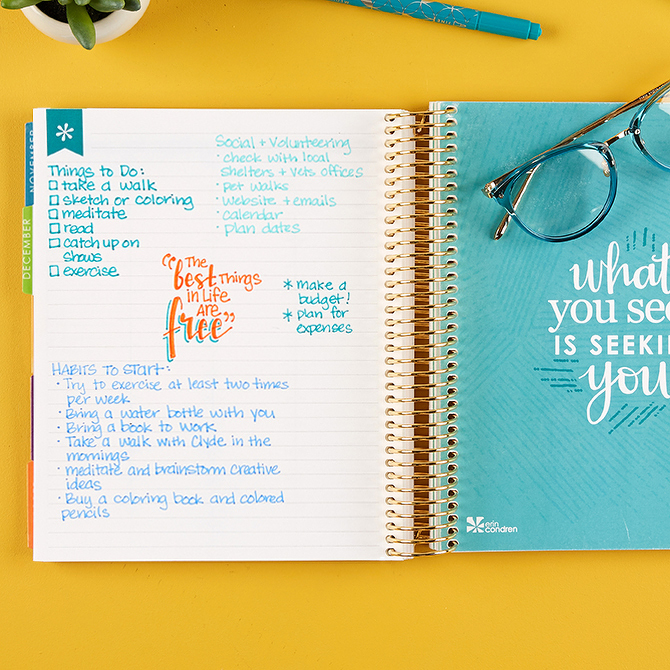 NOVEMBER
DECEMBER
Things to Do:
take a walk
sketch or coloring
meditate
read
catch up on
shows
exercise
Social + Volunteering
· check with local
shelters + vets offices
· pet walks
· website + emails
· calendar
· plan dates
"The
best Things
in Life
Are
free"
* make a
budget!
* plan for
expenses
HABITS TO START:
· Try to exercise at least two times
per week
· Bring a water bottle with you
· Bring a book to work
· Take a walk with Clyde in the
mornings
· meditate and brainstorm creative
ideas
· Buy a coloring book and colored
pencils
what
you see
IS SEEKIN
you
erin
condren